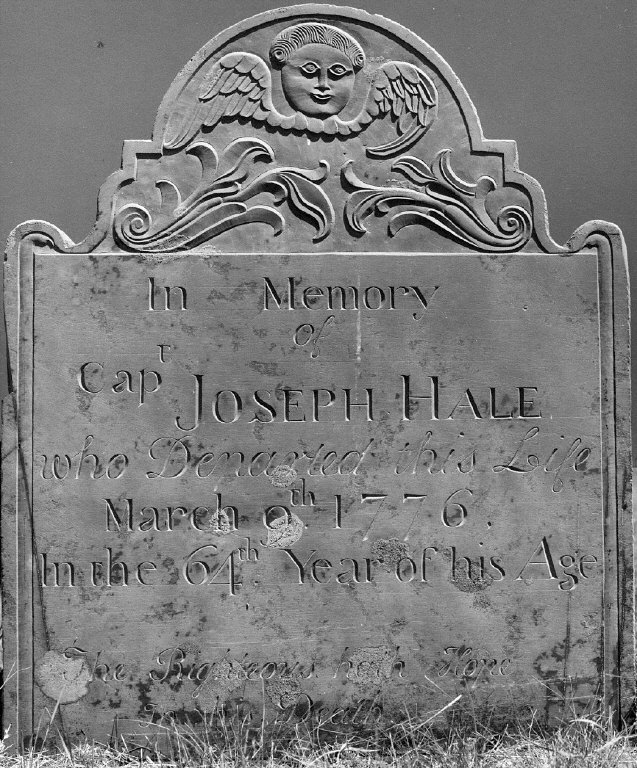 In Memory
of
Capᵗ JOSEPH HALE
who Departed this Life
March 9th 1776.
In the 64th Year of his Age
The Righteous hath Hope
in his Death.